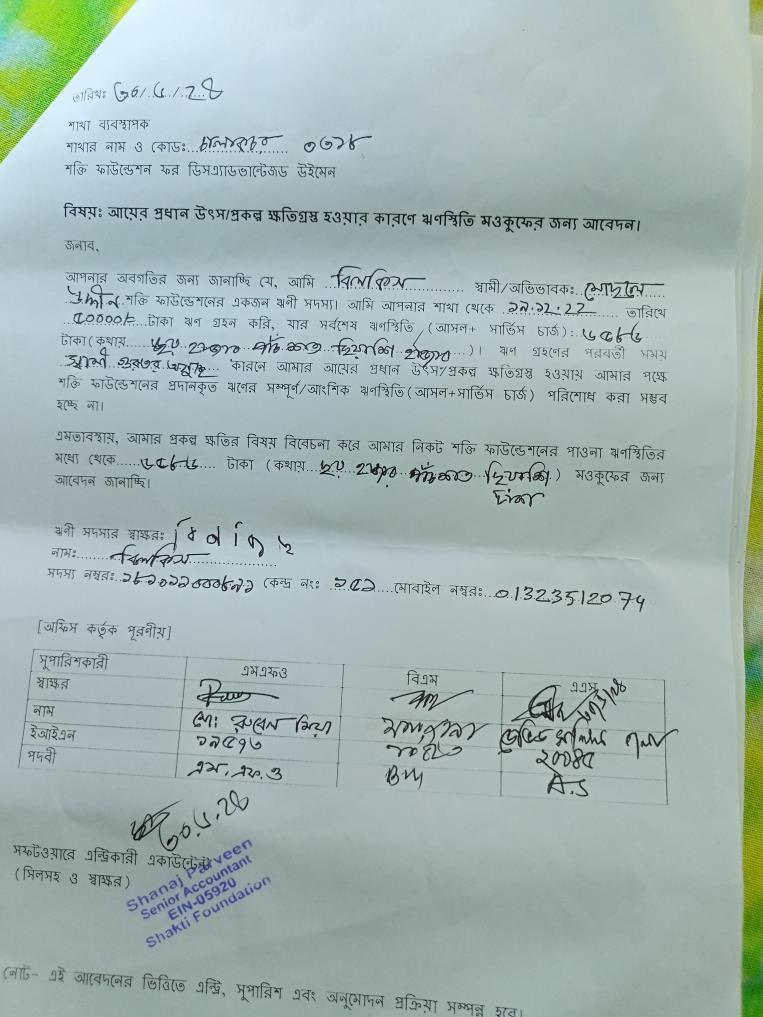 তারিখঃ ৩০/.৫./.২৪
শাখা ব্যবস্থাপক
শাখার নাম ও কোডঃ
শক্তি ফাউন্ডেশন ফর ডিসএ্যাডভান্টেজড উইমেন
বিষয়ঃ আয়ের প্রধান উৎস/প্রকল্প ক্ষতিগ্রস্থ হওয়ার কারণে ঋণস্থিতি মওকুফের জন্য আবেদন।
জনাব,
আপনার অবগতির জন্য জানাচ্ছি যে, আমি বিলকিস স্বামী/অভিভাবকঃ
শক্তি ফাউন্ডেশনের একজন ঋনী সদস্য। আমি আপনার শাখা থেকে ১৯.১২.২২ তারিখে
৫০০০০/- টাকা ঋণ গ্রহন করি, যার সর্বশেষ ঋণস্থিতি (আসল+ সার্ভিস চার্জ)ঃ ৬৫৮৬
টাকা(কথায় ছয় হাজার পাঁচশত ছিয়াশি)। ঋণ গ্রহণের পরবর্তী সময়
স্বামী গুরুতর অসুস্থ কারনে আমার আয়ের প্রধান উৎস/প্রকল্প ক্ষতিগ্রস্থ হওয়ায় আমার পক্ষে
শক্তি ফাউন্ডেশনের প্রদানকৃত ঋণের সম্পূর্ণ/আংশিক ঋণস্থিতি(আসল+সার্ভিস চার্জ) পরিশোধ করা সম্ভব
হচ্ছে না।
এমতাবস্থায়, আমার প্রকল্প ক্ষতির বিষয় বিবেচনা করে আমার নিকট শক্তি ফাউন্ডেশনের পাওনা ঋণস্থিতির
মধ্যে থেকে ৬৫৮৬ টাকা (কথায় ছয় হাজার পাঁচশত ছিয়াশি) মওকুফের জন্য
টাকা
আবেদন জানাচ্ছি।
ঋনী সদস্যর স্বাক্ষরঃ বিলকিছ
নামঃ বিলকিস
সদস্য নম্বরঃ কেন্দ্র নংঃ ১৫১ মোবাইল নম্বরঃ 01323512074
[অফিস কর্তৃক পূরণীয়]
সুপারিশকারী এমএফও বিএম এএস
স্বাক্ষর
নাম মোঃ রুবেল মিয়া
ইআইএন ১৯৫৭৩ ২০০৪৫
পদবী এম. এফ. ও BM A.S
৩০.৫.২৪
সফটওয়ারে এন্ট্রিকারী একাউন্টেন্ট
(সিলসহ ও স্বাক্ষর)
Shanaj Parveen
Senior Accountant
EIN-05920
Shakti Foundation
নোট- এই আবেদনের ভিত্তিতে এন্ট্রি, সুপারিশ এবং অনুমোদন প্রক্রিয়া সম্পন্ন হবে।